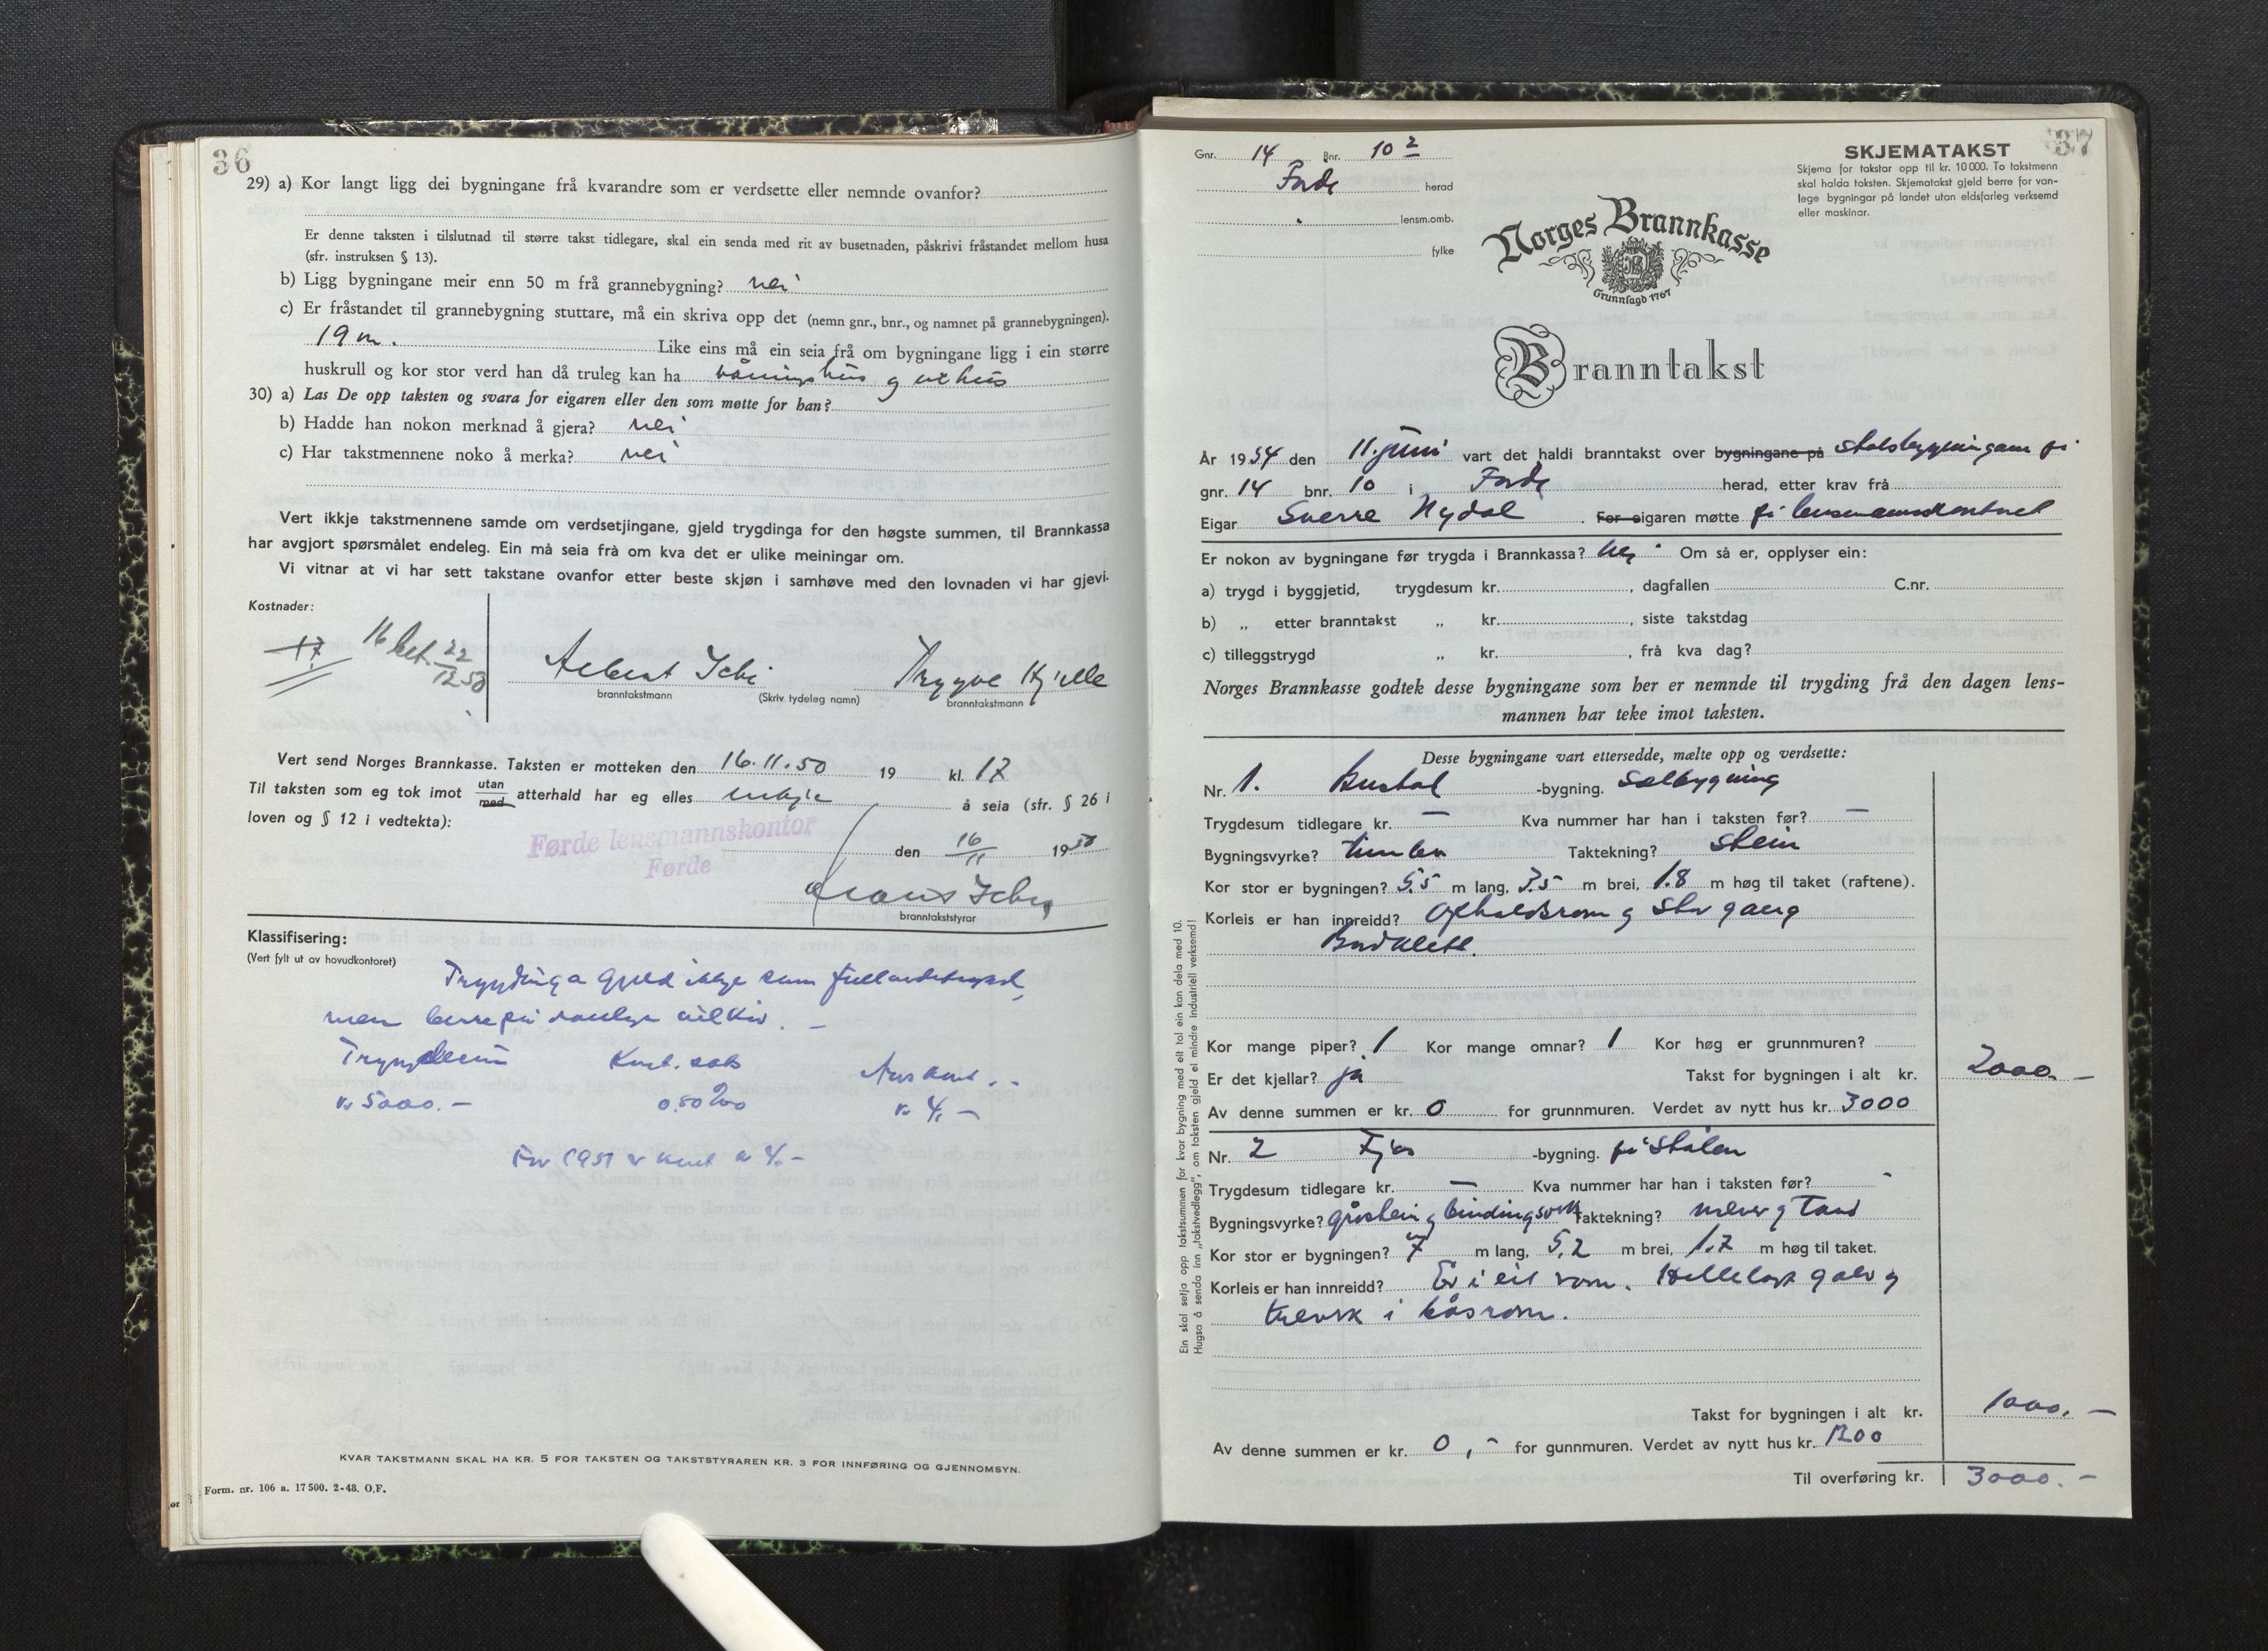 36
29) a) Kor langt ligg dei bygningane frå kvarandre som er verdsette eller nemnde ovanfor?
Er denne taksten i tilslutnad til større takst tidlegare, skal ein senda med rit av busetnaden, påskrivi fråstandet mellom husa
(sfr. instruksen § 13).
b) Ligg bygningane meir enn 50 m frå grannebygning? nei
c) Er fråstandet til grannebygning stuttare, må ein skriva opp det (nemn gnr., bnr., og namnet på grannebygningen).
19 m. Like eins må ein seia frå om bygningane ligg i ein større
huskrull og kor stor verd han då truleg kan ha våningshus og uthus
30) a) Las De opp taksten og svara for eigaren eller den som møtte for han?
b) Hadde han nokon merknad å gjera? nei
c) Har takstmennene noko å merka? nei
Vert ikkje takstmennene samde om verdsetjingane, gjeld trygdinga for den høgste summen, til Brannkassa
har avgjort spørsmålet endeleg. Ein må seia frå om kva det er ulike meiningar om.
Vi vitnar at vi har sett takstane ovanfor etter beste skjøn i samhøve med den lovnaden vi har gjevi.
Kostnader:
17 16 bet. 22/12 50
Trygve
branntakstmann (Skriv tydeleg namn) branntakstmann
Vert send Norges Brannkasse. Taksten er motteken den 16.11.50 19 kl. 17
Til taksten som eg tok imot utan/med atterhald har eg elles inkje å seia (sfr. § 26 i
loven og § 12 i vedtekta):
Førde lensmannskontor
Førde
den 16/11 1950
branntakststyrar
Klassifisering:
(Vert fylt ut av hovudkontoret)
Trygdinga gjeld ikkje som
men berre på vanlege vilkår. –
Trygdesum Kont. sats Års kont.
kr 5000.– 0.80 ‰ kr 4,–
For 1951 er kont kr 4.–
KVAR TAKSTMANN SKAL HA KR. 5 FOR TAKSTEN OG TAKSTSTYRAREN KR. 3 FOR INNFØRING OG GJENNOMSYN.
Form. nr. 106 a. 17500. 2-48. O.F.
37
Gnr. 14 Bnr. 10 2
Førde herad
lensm.omb.
fylke
SKJEMATAKST
Skjema for takstar opp til kr. 10000. To takstmenn
skal halda taksten. Skjematakst gjeld berre for van-
lege bygningar på landet utan eldsfarleg verksemd
eller maskinar.
Norges Brannkasse
Grunnlagd 1767
Branntakst
År 1954 den 11. juni vart det haldi branntakst over bygningane på stølsbygningane på
gnr. 14 bnr. 10 i Førde herad, etter krav frå
Eigar Sverre Nydal . For eigaren møtte på lensmannskontoret
Er nokon av bygningane før trygda i Brannkassa? nei Om så er, opplyser ein:
a) trygd i byggjetid, trygdesum kr. , dagfallen C.nr.
b) „ etter branntakst „ kr. , siste takstdag
c) tilleggstrygd „ kr. , frå kva dag?
Norges Brannkasse godtek desse bygningane som her er nemnde til trygding frå den dagen lens-
mannen har teke imot taksten.
Desse bygningane vart ettersedde, mælte opp og verdsette:
Nr. 1. Bustad -bygning. Selbygning
Trygdesum tidlegare kr. – Kva nummer har han i taksten før? –
Bygningsvyrke? tømber Taktekning? stein
Kor stor er bygningen? 5.5 m lang, 3.5 m brei, 1.8 m høg til taket (raftene).
Korleis er han innreidd? Opholdsrom og gang
Kor mange piper? 1 Kor mange omnar? 1 Kor høg er grunnmuren?
Er det kjellar? ja Takst for bygningen i alt kr. 2000.–
Av denne summen er kr. 0 for grunnmuren. Verdet av nytt hus kr. 3000
Nr. 2 Fjøs -bygning. på stølen
Trygdesum tidlegare kr. – Kva nummer har han i taksten før? -
Bygningsvyrke? gråstein og bindingsverk Taktekning? never og
Kor stor er bygningen? 7 m lang, 5.2 m brei, 1.7 m høg til taket.
Korleis er han innreidd? Er i eit rom. Hellelagt golv og
treverk i båsrom.
Takst for bygningen i alt kr. 1000.–
Av denne summen er kr. 0,- for gunnmuren. Verdet av nytt hus kr. 1200
Til overføring kr. 3000.–
Ein skal setja opp takstsummen for kvar bygning med eit tal ein kan dela med 10.
Hugsa å senda inn „takstvedlegg”, om taksten gjeld ei mindre industriell verksemd!